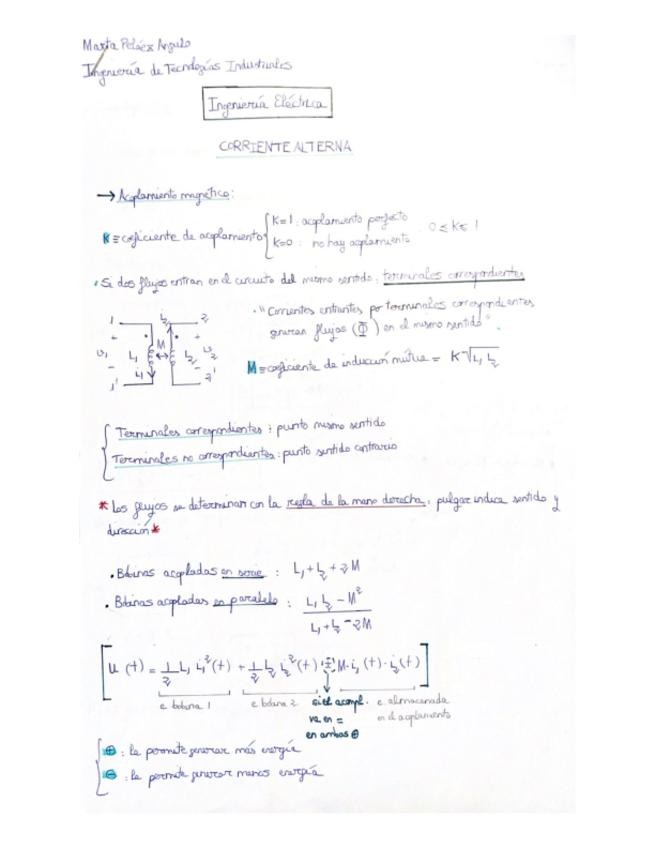 Marta Peláez Angulo
Ingeniería de Tecnologías Industriales
Ingeniería Eléctrica
CORRIENTE ALTERNA
→ Acoplamiento magnético:
K ≡ coeficiente de acoplamiento { K=1 : acoplamiento perfecto
K=0 : no hay acoplamiento
0 ≤ K ≤ 1
• Si dos flujos entran en el circuito del mismo sentido: terminales correspondientes
• "Corrientes entrantes por terminales correspondientes
generan flujos (Φ) en el mismo sentido".
1 i₂ 2
+ • M • +
u₁ L₁ ↔ L₂ u₂
- i₁ -
1' 2'
M ≡ coeficiente de inducción mutua = K√L₁L₂
{ Terminales correspondientes : punto mismo sentido
Terminales no correspondientes : punto sentido contrario
* Los flujos se determinan con la regla de la mano derecha: pulgar indica sentido y
dirección *
• Bobinas acopladas en serie : L₁+L₂+2M
• Bobinas acopladas en paralelo : L₁L₂ - M²
L₁+L₂-2M
[ u(t) = 1/2 L₁ i₁²(t) + 1/2 L₂ i₂²(t) (±) M·i₁(t)·i₂(t) ]
e bobina 1 e bobina 2 si el acopl. e almacenada
va en = en el acoplamiento
en ambas ⊕
{ ⊕ : le permite generar más energía
⊖ : le permite generar menos energía